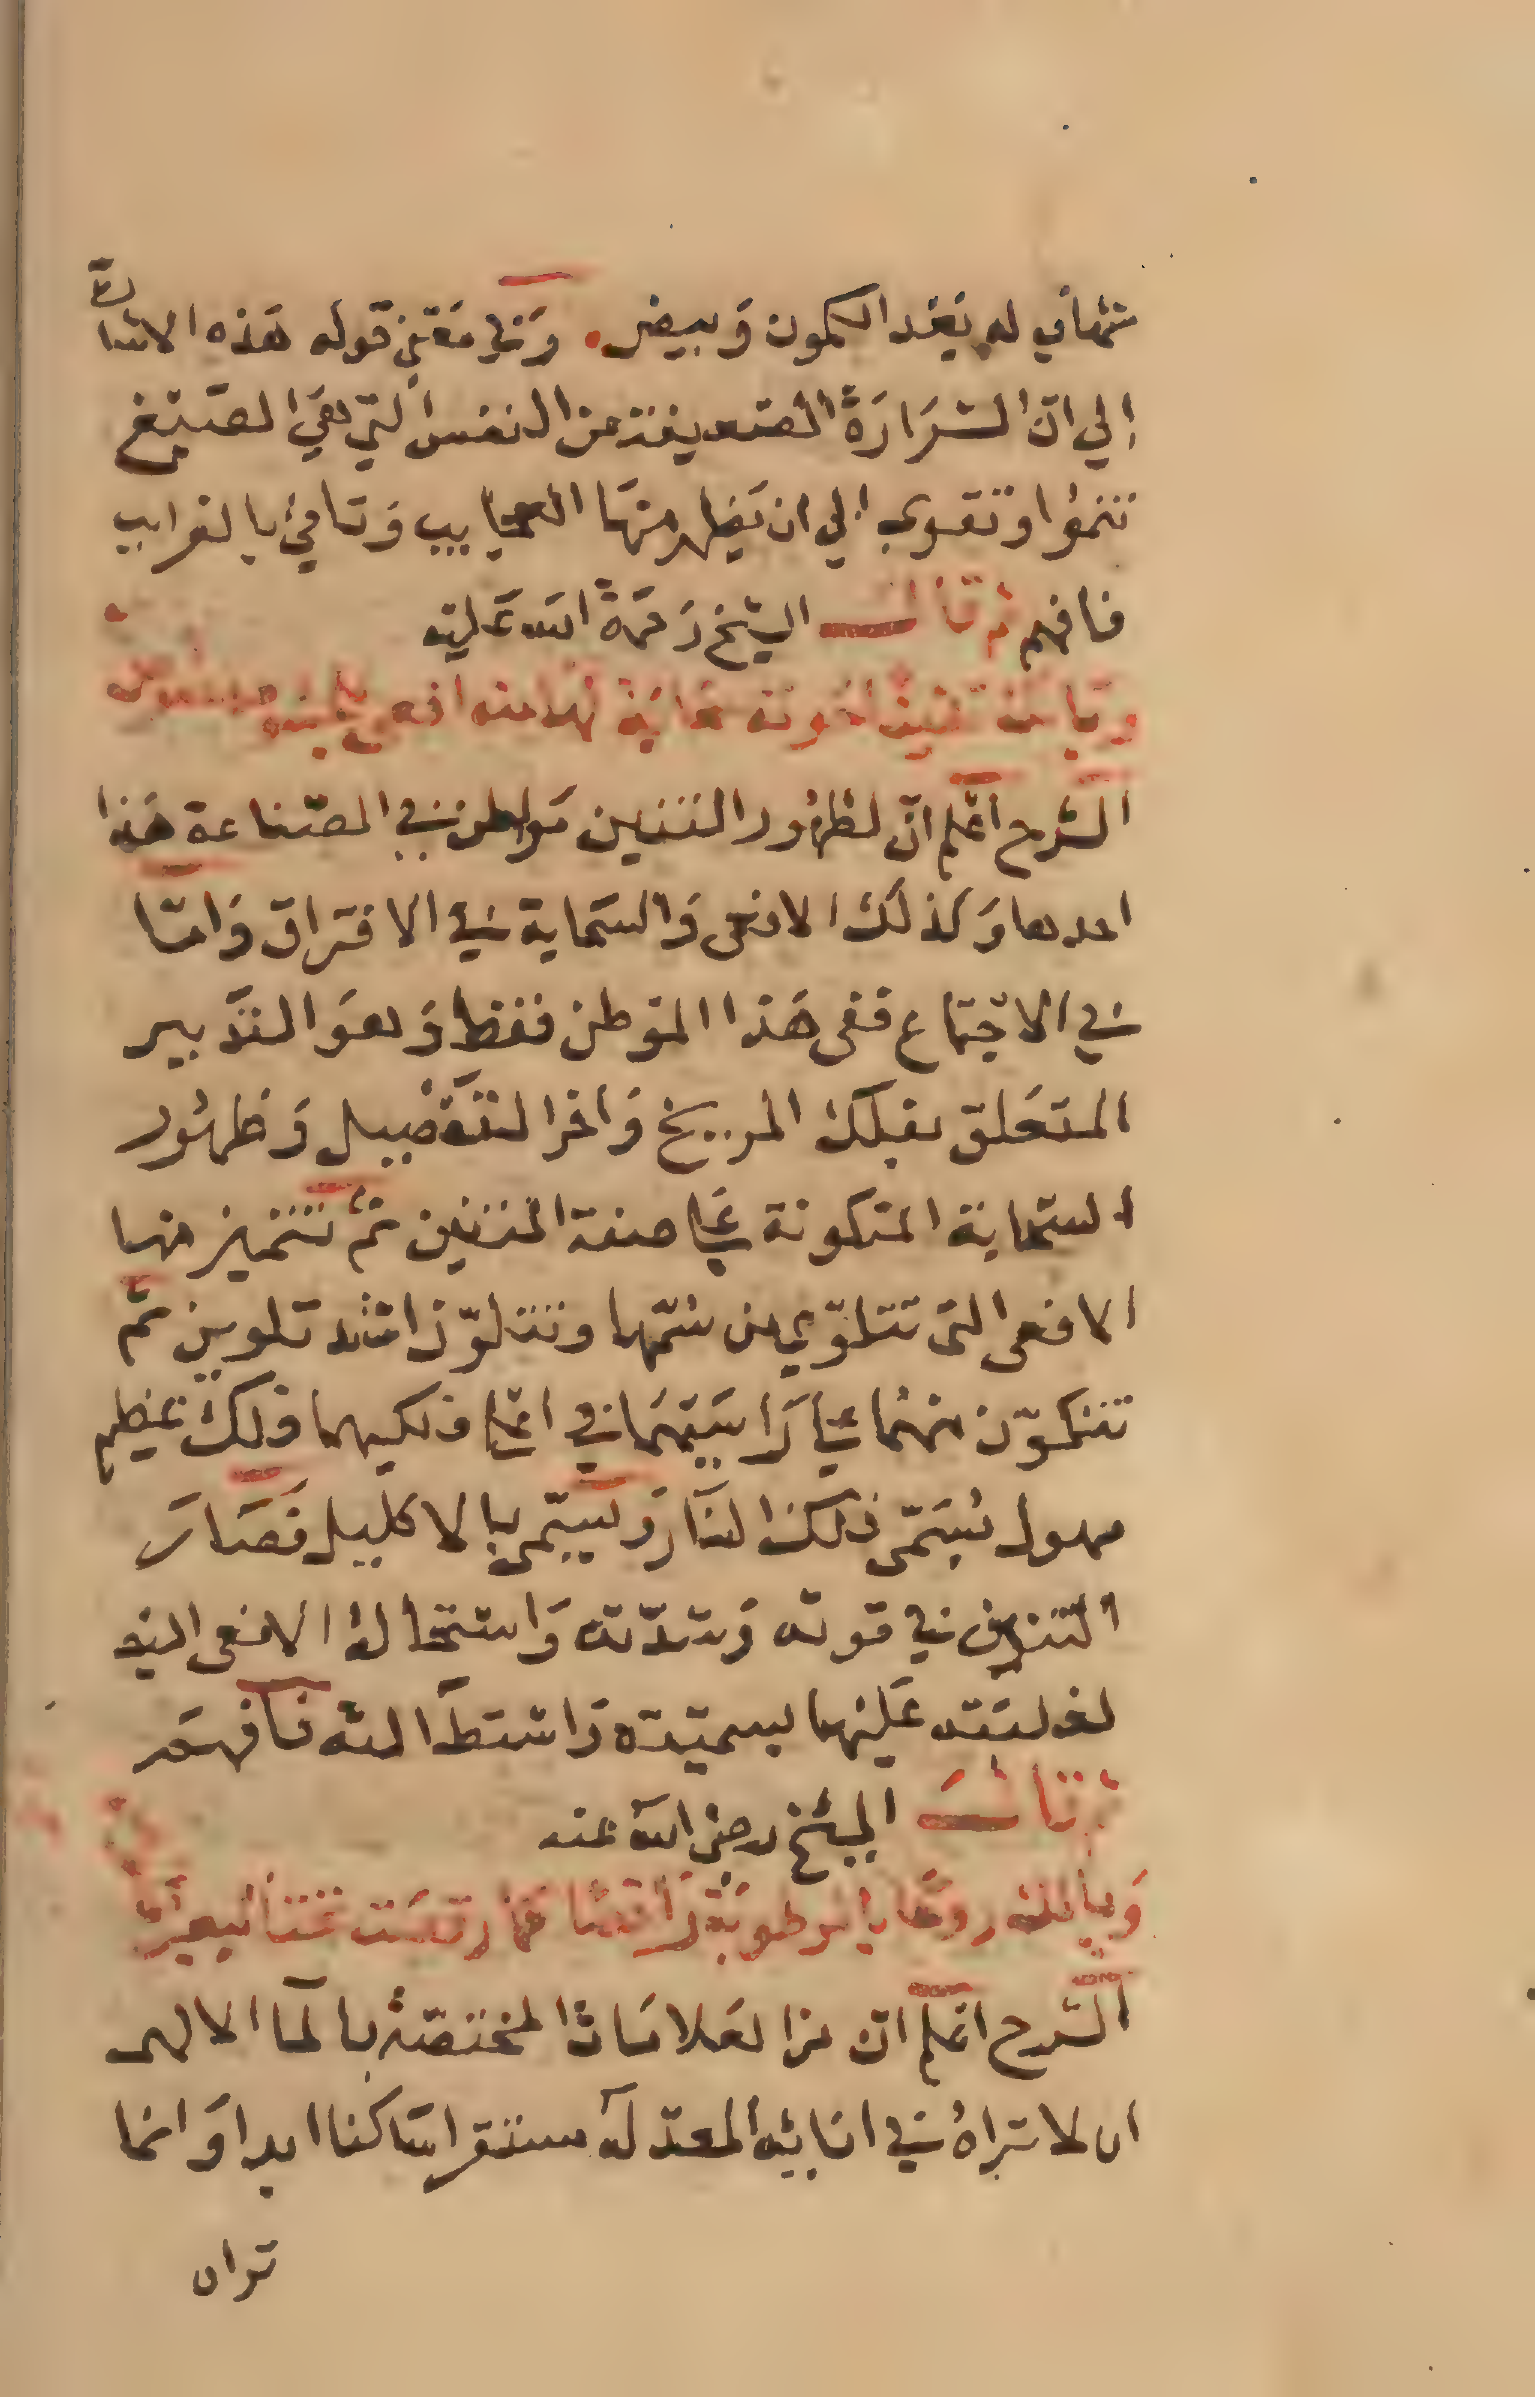 شهابي له بعد الكمون وبيض. وفي معني قوله هذه الاشارة
الي ان الشرارة الضعيفة من النفس التي هي الصبغ
تنموا وتقوي الي ان تظهر منها العجايب وتافي بالغرايب
فافهم ثم قال الشيخ رحمة الله عليه
الشرح اعلم ان لظهور التنين مواطن في الصناعة هذا
احدها وكذلك الافعى والسحابة في الافتراق واما
في الاجتماع ففى هذا الموطن فقط وهو التدبير
المتعلق بفلك المريخ واخر التفصيل وظهور
السحابة المتكونة على صفة التنين ثم تتميز منها
الافعى التى تتلوي من سمها وتتلون اشد تلوين ثم
تتكون منهما على راسيهما في اعلا فلكيهما فلك عظيم
مهول يسمى ذلك النار ويسمى بالاكليل فصار
التنين في قوته وشدته واستحالة الافعى اليه
لغلبته عليها بسميته واشتطاطه فافهم
ثم قال الشيخ رضى الله عنه
الشرح اعلم ان من العلامات المختصة بالما الالهى
ان لا تراه في انابيه المعد له مستقرا ساكنا ابدا وانما
تراه